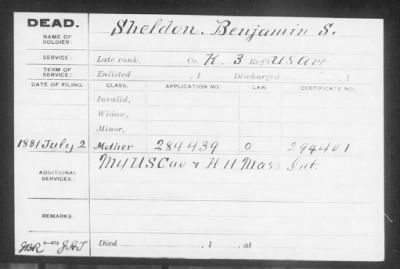 DEAD.
NAME OF SOLDIER: Sheldon, Benjamin S.
SERVICE: Late rank, Co. K. 3 Reg't US Art
TERM OF SERVICE: Enlisted , 1 Discharged , 1
DATE OF FILING. CLASS. APPLICATION NO. LAW. CERTIFICATE NO.
Invalid,
Widow,
Minor,
1881 July 2 Mother 284439 O. 294401
ADDITIONAL SERVICES: M 4 US Cav & H 11 Mass Inf.
REMARKS:
Died , 1 , at